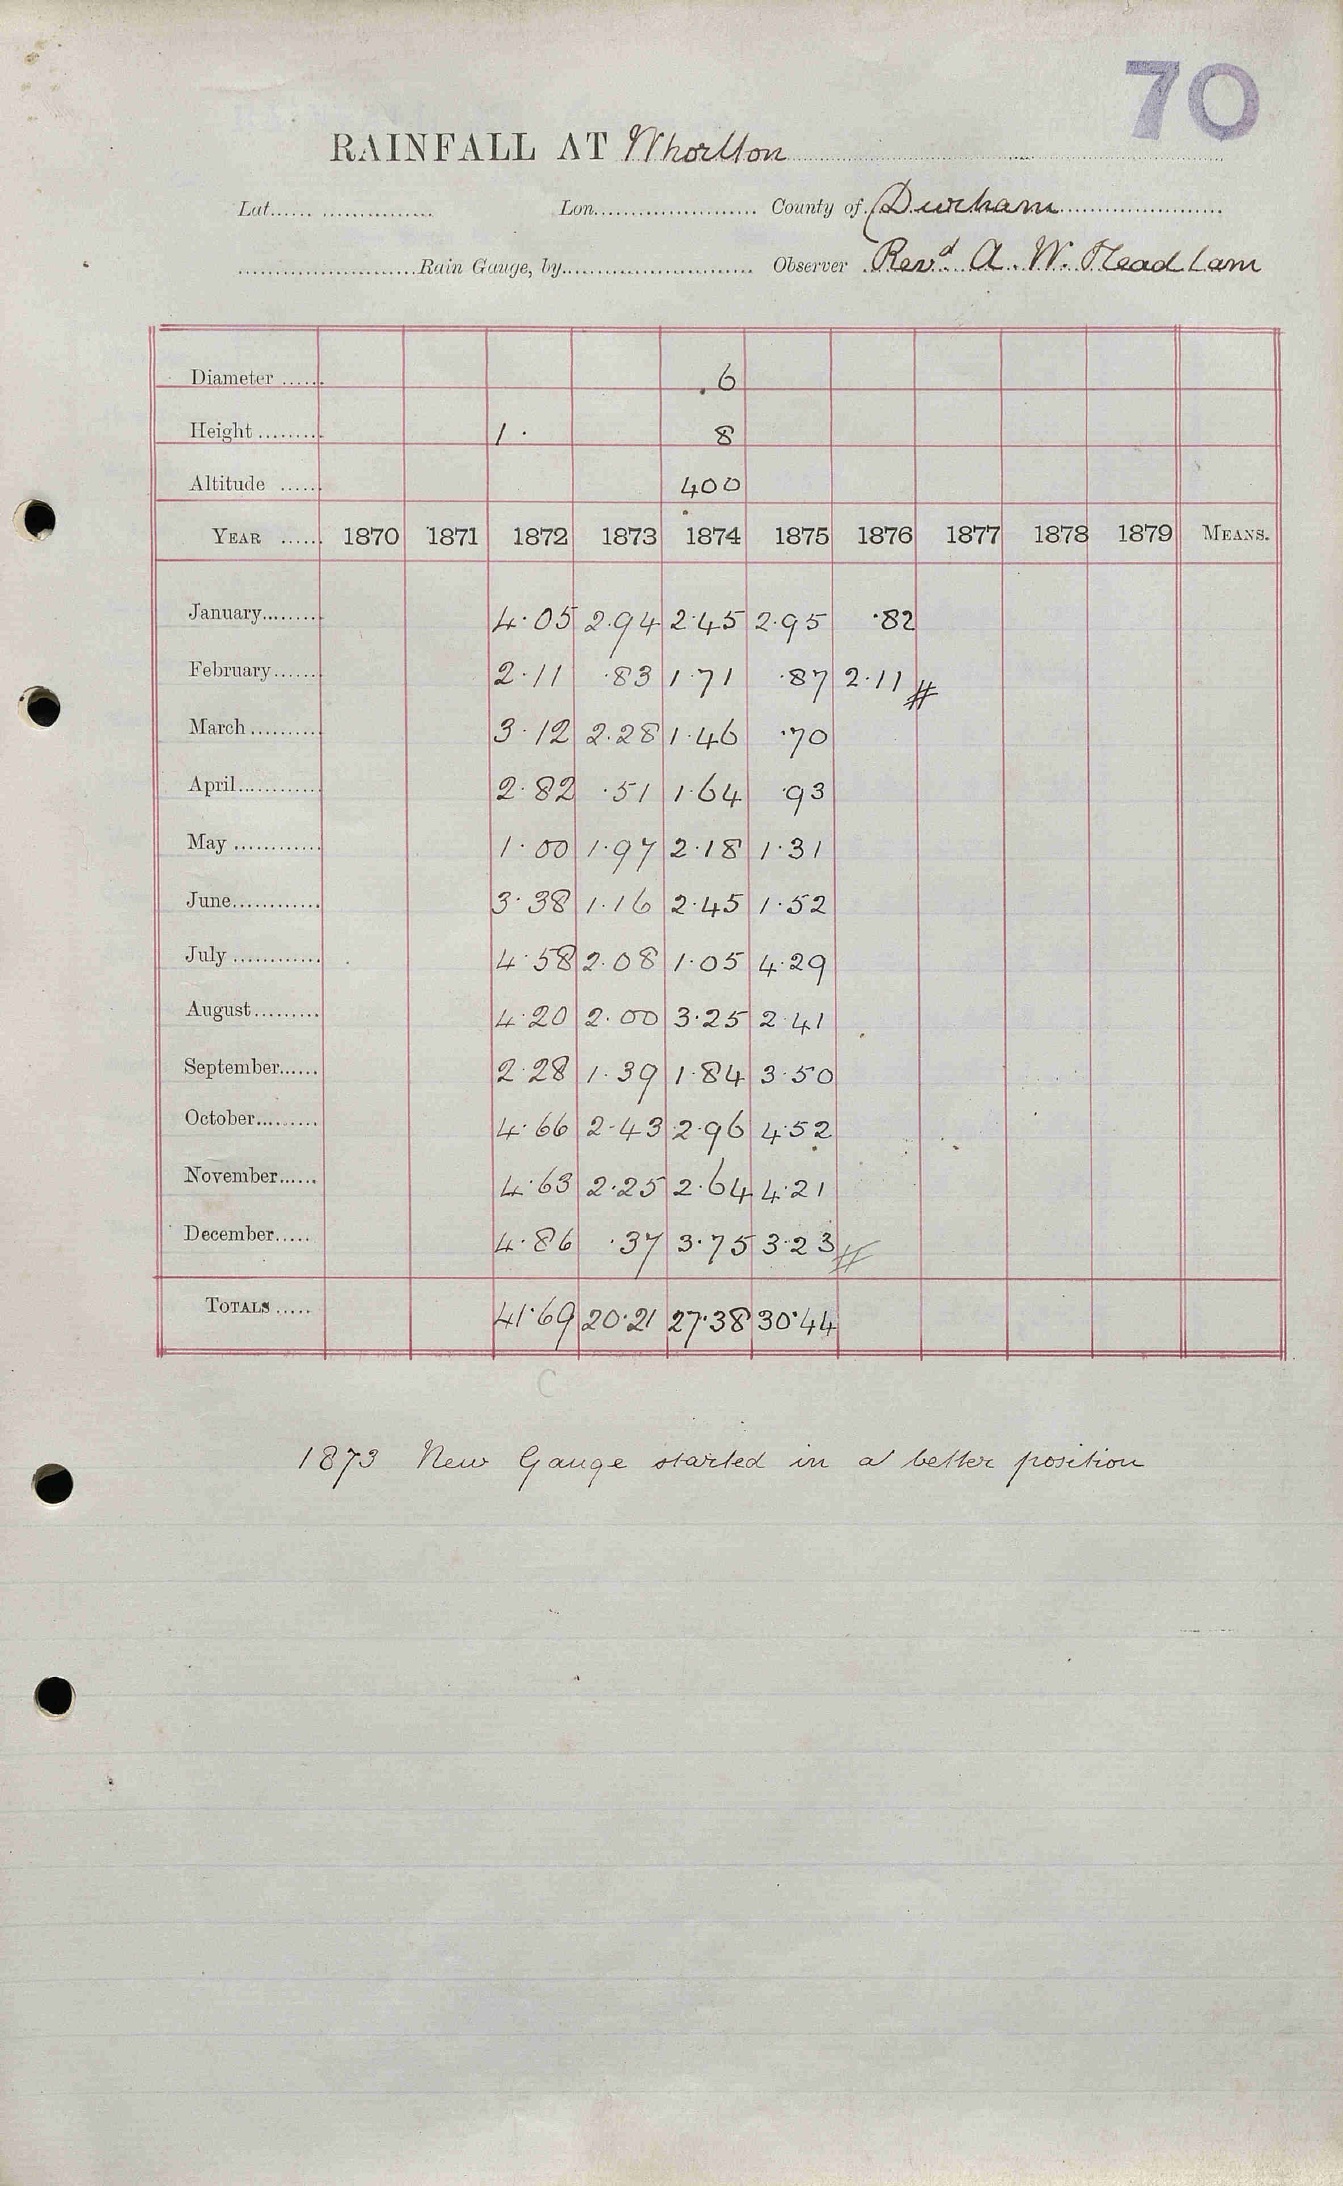 70
RAINFALL AT Whorlton
Lat. Lon. County of Durham
Rain Gauge, by Observer Revd A. W. Headlam
Diameter 6
Height 1· 8
Altitude 400
YEAR 1870 1871 1872 1873 1874 1875 1876 1877 1878 1879 MEANS.
January 4·05 2·94 2·45 2·95 ·82
February 2·11 ·83 1·71 ·87 2·11 #
March 3·12 2·28 1·46 ·70
April 2·82 ·51 1·64 ·93
May 1·00 1·97 2·18 1·31
June 3·38 1·16 2·45 1·52
July 4·58 2·08 1·05 4·29
August 4·20 2·00 3·25 2·41
September 2·28 1·39 1·84 3·50
October 4·66 2·43 2·96 4·52
November 4·63 2·25 2·64 4·21
December 4·86 ·37 3·75 3·23 #
TOTALS 41·69 20·21 27·38 30·44
C
1873 New Gauge started in a better position